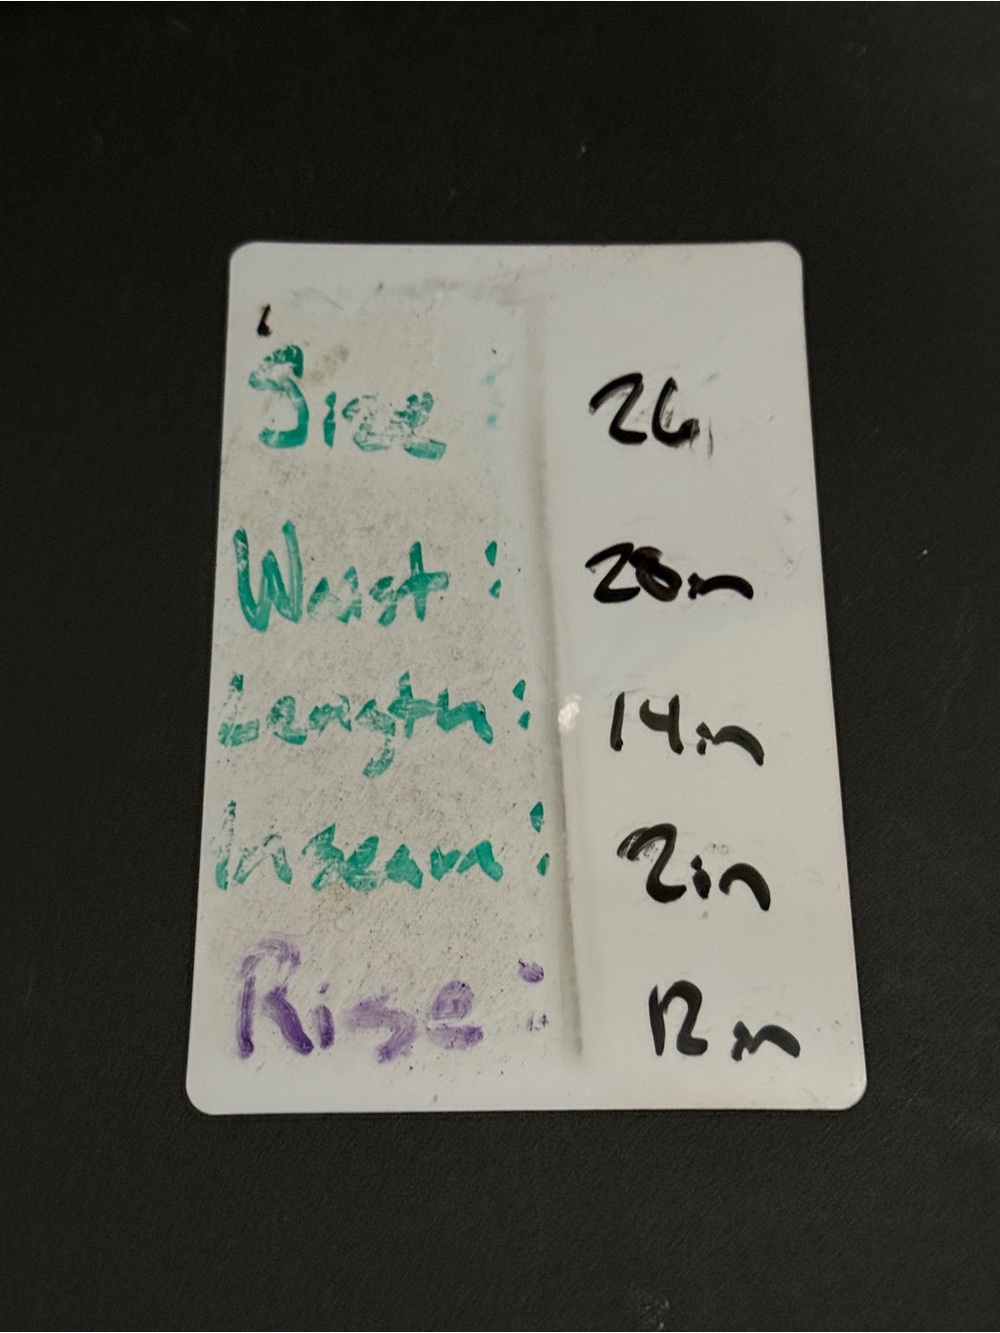 Size : 26
Waist : 28in
Length : 14in
Inseam : 2in
Rise : 12in